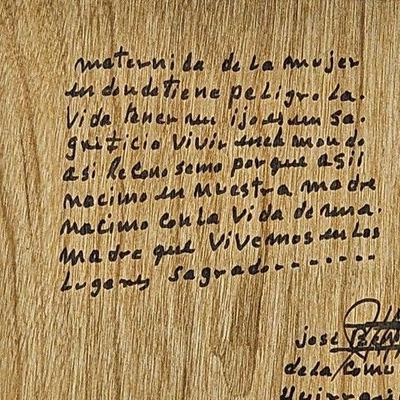 maternida de la mujer
en donde tiene peligro la.
vida tener un ijo es un sa-
grificio vivir en el mondo
asi Reconosemo por que asii
nacimo en nuestra madre
nacimo con la vida de una.
madre que vivemos en los
lugares sagrado--------
jose
de la Comu